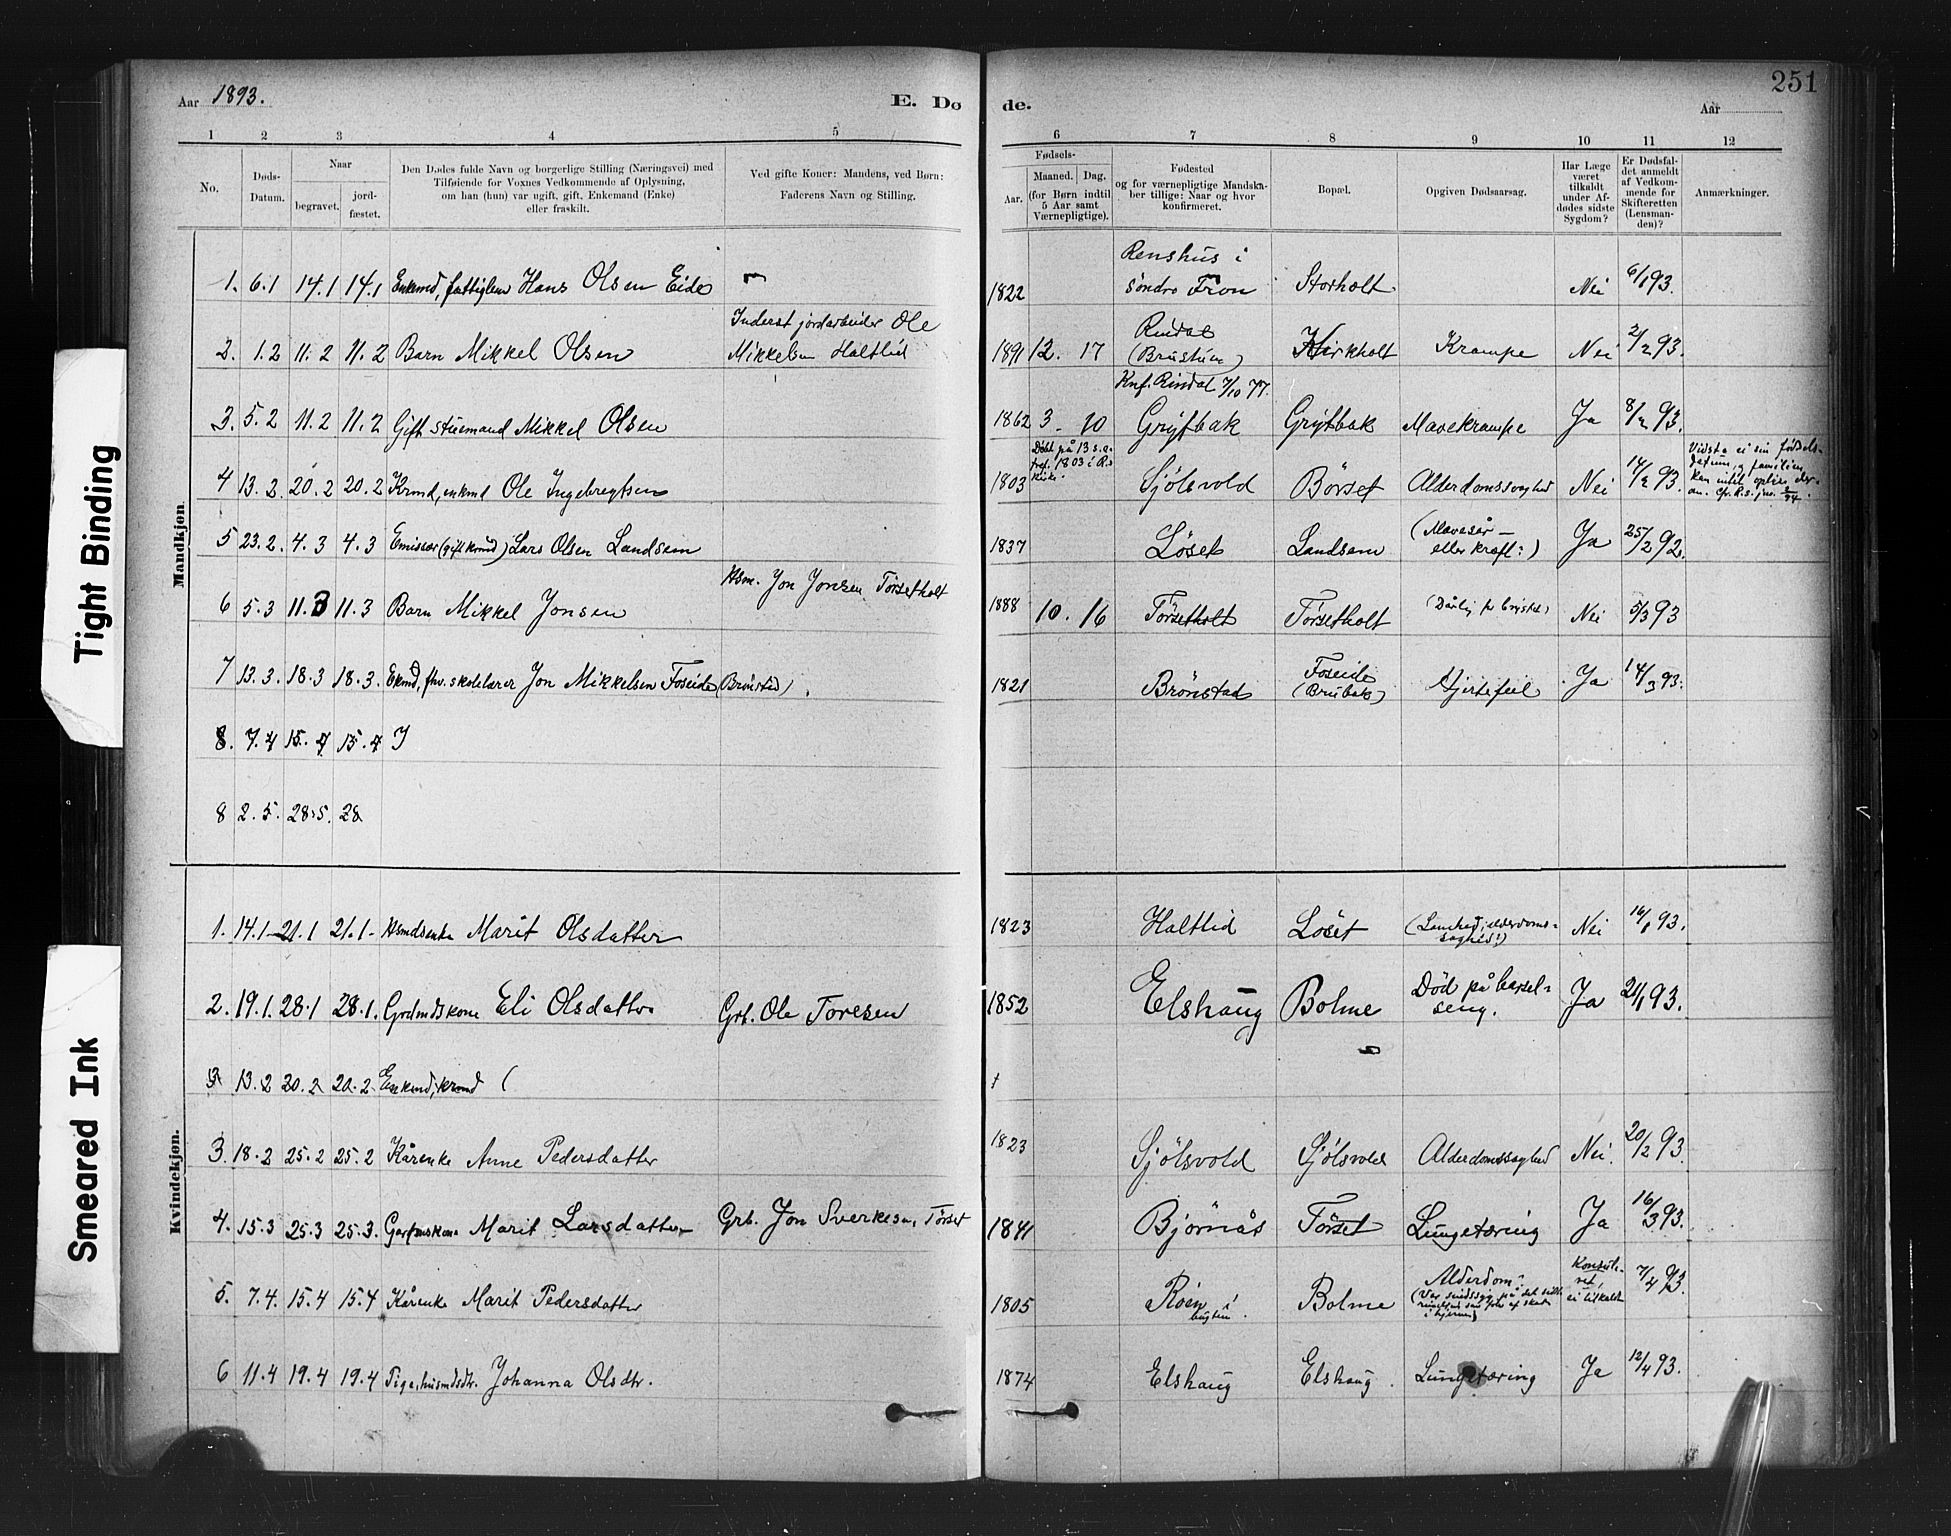 251
Aar 1893.
E. Dø
de.
Aar
1 2 3 4 5 6 7 8 9 10 11 12
No.
Døds-
Datum.
Naar
begravet.
jord-
fæstet.
Den Dødes fulde Navn og borgerlige Stilling (Næringsvei) med
Tilføiende for Voxnes Vedkommende af Oplysning,
om han (hun) var ugift, gift, Enkemand (Enke)
eller fraskilt.
Ved gifte Koner: Mandens, ved Børn:
Faderens Navn og Stilling.
Fødsels-
Aar.
Maaned. Dag.
(for Børn indtil
5 Aar samt
Værnepligtige).
Fødested
og for værnepligtige Mandska-
ber tillige: Naar og hvor
konfirmeret.
Bopæl.
Opgiven Dødsaarsag.
Har Læge
været
tilkaldt
under Af-
dødes sidste
Sygdom?
Er Dødsfal-
det anmeldt
af Vedkom-
mende for
Skifteretten
(Lensman-
den)?
Anmærkninger.
Mandkjøn.
Renshus i
1. 6.1 14.1 14.1 Enkmd, fattiglem Hans Olsen Eide 1822 söndre Fron Storholt Nei 6/1 93.
Inderst jordarbeider Ole
Rindal
2. 1.2 11.2 11.2 Barn Mikkel Olsen Mikkelsen Haltlid 1891 12. 17 Kirkholt Krampe Nei 2/2 93.
Knf. Rindal 7/10 77.
3. 5.2 11.2 11.2 Gift stuemand Mikkel Olsen 1862 3. 10 Grytbak Grytbak Mavekrampe Ja 8/2 93.
Döbt på 13 s. e.
tref. 1803 i R.s
Kirke.
Vidste ei sin fødsels-
datum, familien
kan intet oplyse der-
om.
4 13.2. 20.2 20.2 Krmd, enkmd Ole Ingebregtsen 1803 Sjölsvold Børset Alderdomssvaghed Nei 14/2 93.
5 23.2. 4.3 4.3 Emissær (gift krmd) Lars Olsen Landsem 1837 Löset Landsem (Mavesår —
eller kræft:) Ja 25/2 92.
Hsm. Jon Jonsen Tørsetholt
6 5.3 11.3 11.3 Barn Mikkel Jonsen 1888 10. 16 Tørsetholt Tørsetholt (Dårlig for brystet) Nei 5/3 93
7 13.3. 18.3 18.3. Ekmd, fhv. skolelærer Jon Mikkelsen Foseide (Brönstad). 1821 Brönstad Foseide
(Brubak) Hjertefeil Ja 14/3 93.
8. 7.4 15.4 15.4 J
8 2.5. 28.5. 28
Kvindekjøn.
1. 14.1 21.1 21.1 Hsmdsenke Marit Olsdatter 1823 Haltlid Löset (Lamhed, alderdoms-
saghed?) Nei 16/1 93.
2. 19.1. 28.1 28.1. Grdmdskone Eli Olsdatter Grb. Ole Toresen 1852 Elshaug Bolme Död på barsel-
seng. Ja 21/1 93.
3 13.2 20.2 20.2. Enkmd, krmd (
3. 18.2 25.2 25.2 Kårenke Anne Pedersdatter 1823 Sjölsvold Sjölsvold Alderdomssvaghed Nei. 20/2 93.
4. 15.3 25.3 25.3. Gardmskone Marit Larsdatter Grb. Jon Sverkesen, Tørset 1841 Björnås Tørset Lungetæring Ja 16/3 93.
5. 7.4. 15.4 15.4 Kårenke Marit Pedersdatter 1805 Roen
Bolme Alderdom.
(Var sindssyg på det sidste
i hjernen) Konsule-
ret,
ei tilkaldt 7/4 93.
6 11.4 19.4 19.4 Pige, husmdsdtr. Johanna Olsdtr. 1874 Elshaug Elshaug. Lungetæring Ja 12/4 93.
Tight Binding
Smeared Ink